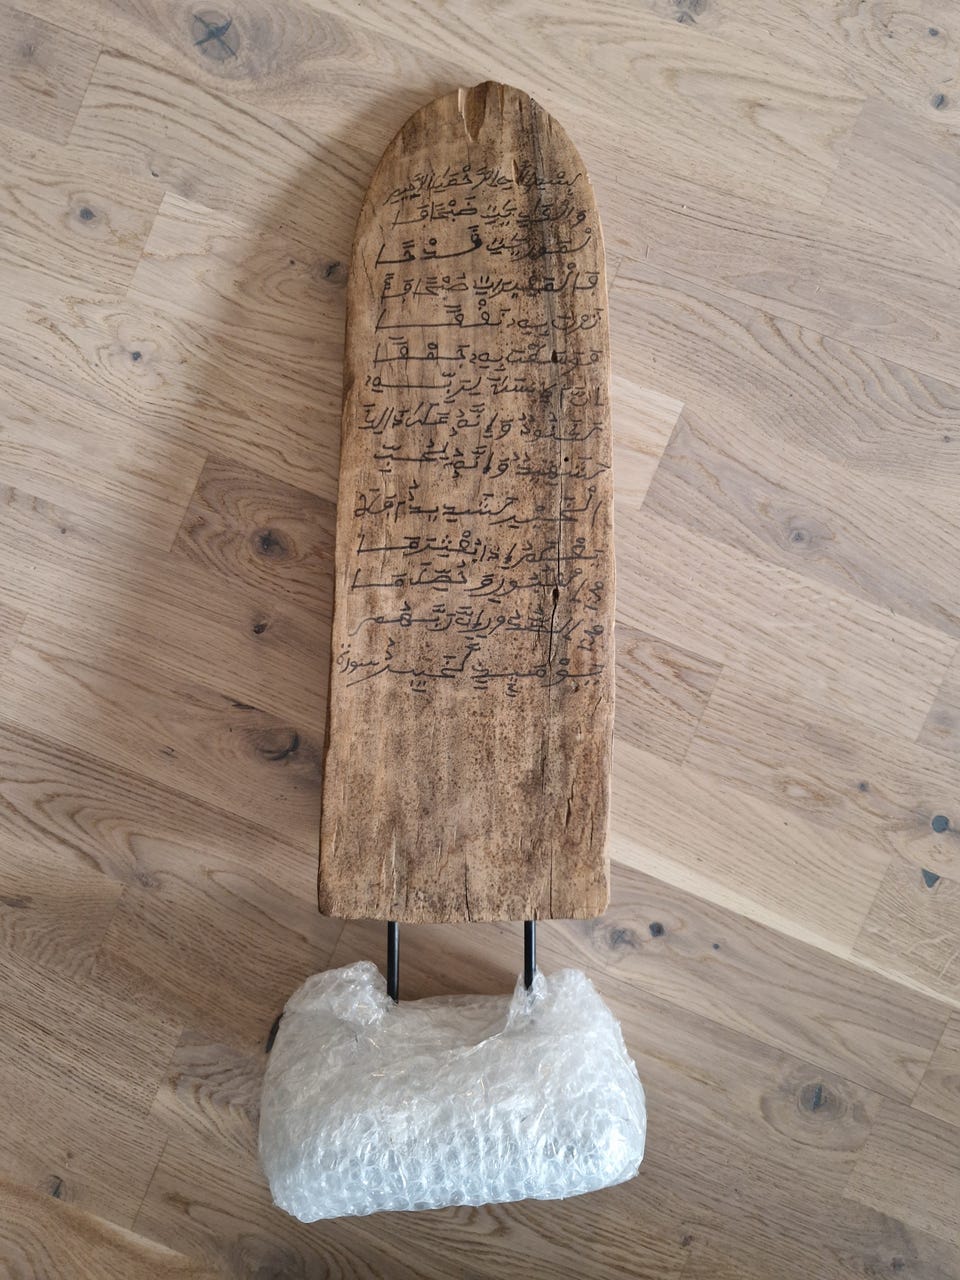 بسم الله الرحمن الرحيم
والعديت ضبحا فا
لموريت قدحا
فالمغيرت صبحا فا
ثرن به نقعا
فوسطن به جمعا
ان الانسن لربه
لكنود وإنه على ذلك
لشهيد وإنه لحب
الخير لشديد أفلا
يعلم إذا بعثر ما
في القبور وحصل ما
في الصدور إن ربهم
بهم يومئذ لخبير سورة